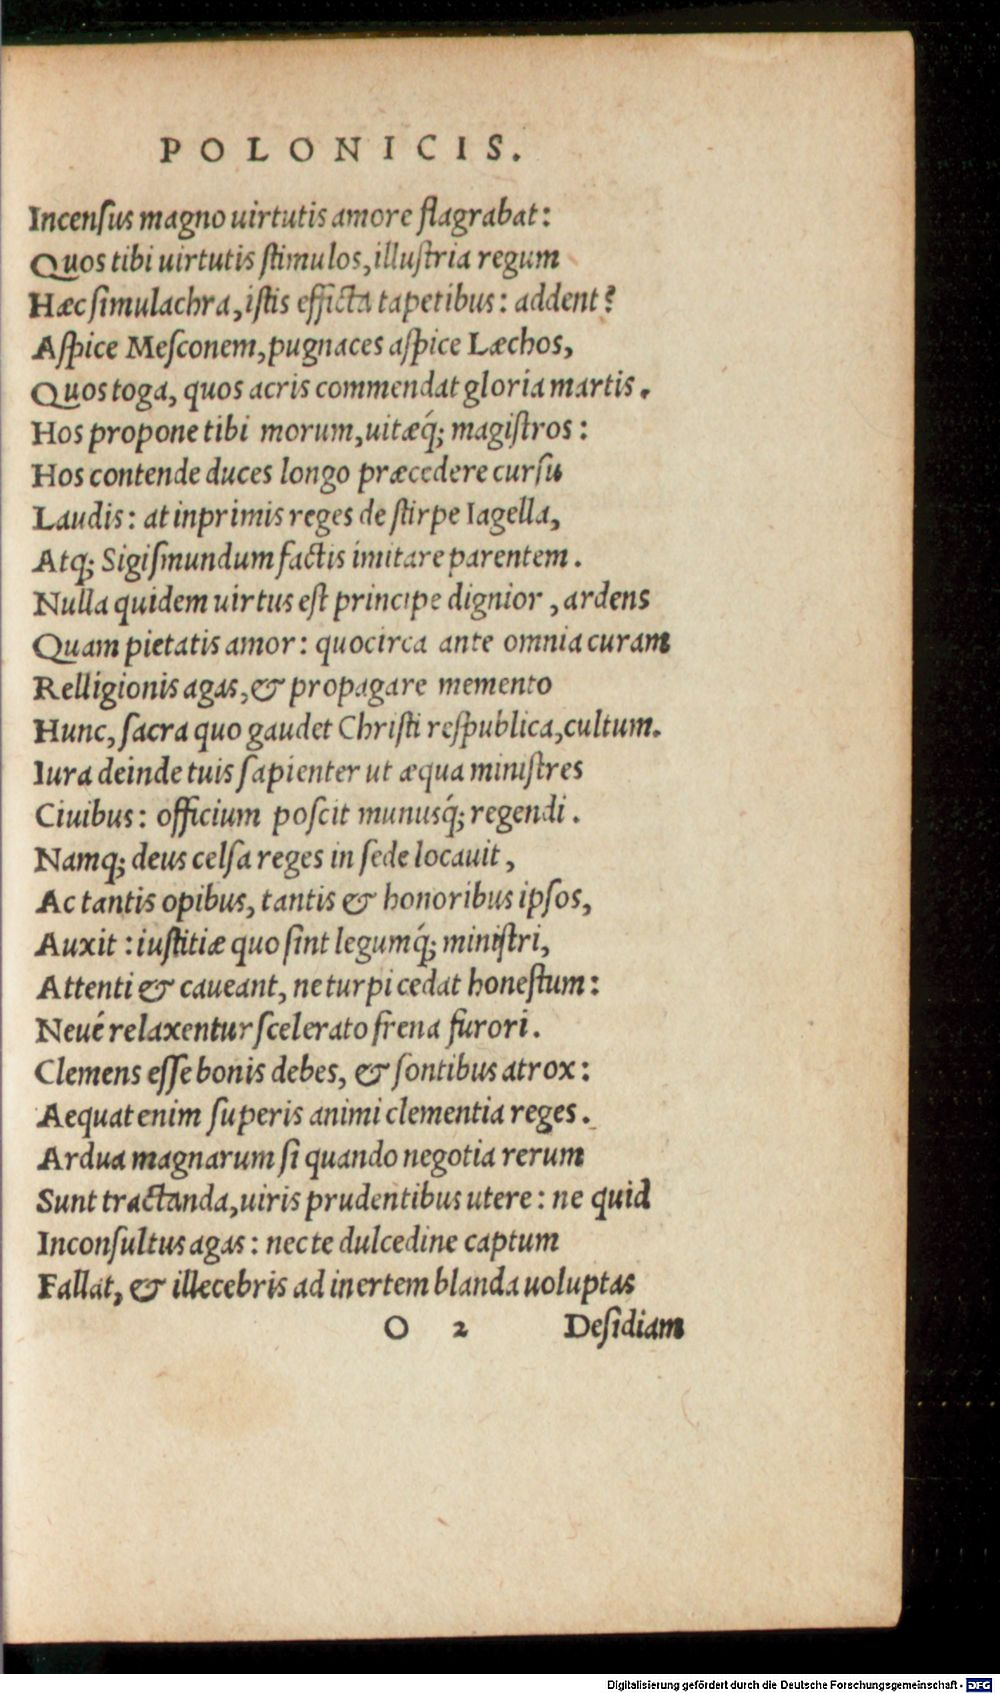 POLONICIS.
Incenſus magno uirtutis amore flagrabat:
Quos tibi uirtutis ſtimulos, illuſtria regum
Hæc ſimulachra, iſtis efficta tapetibus: addent?
Aſpice Meſconem, pugnaces aſpice Læchos,
Quos toga, quos acris commendat gloria martis.
Hos propone tibi morum, uitæq́; magiſtros:
Hos contende duces longo præcedere curſu
Laudis: at inprimis reges de ſtirpe Iagella,
Atq; Sigiſmundum factis imitare parentem.
Nulla quidem uirtus eſt principe dignior, ardens
Quam pietatis amor: quocirca ante omnia curam
Relligionis agas, & propagare memento
Hunc, ſacra quo gaudet Chriſti reſpublica, cultum.
Iura deinde tuis ſapienter ut æqua miniſtres
Ciuibus: officium poſcit munusq́; regendi.
Namq; deus celſa reges in ſede locauit,
Ac tantis opibus, tantis & honoribus ipſos,
Auxit: iuſtitiæ quo ſint legumq́; miniſtri,
Attenti & caueant, ne turpi cedat honeſtum:
Neué relaxentur ſcelerato frena furori.
Clemens eſſe bonis debes, & ſontibus atrox:
Aequat enim ſuperis animi clementia reges.
Ardua magnarum ſi quando negotia rerum
Sunt tractanda, uiris prudentibus utere: ne quid
Inconſultus agas: nec te dulcedine captum
Fallat, & illecebris ad inertem blanda uoluptas
O 2 Deſidiam
Digitalisierung gefördert durch die Deutsche Forschungsgemeinschaft - DFG